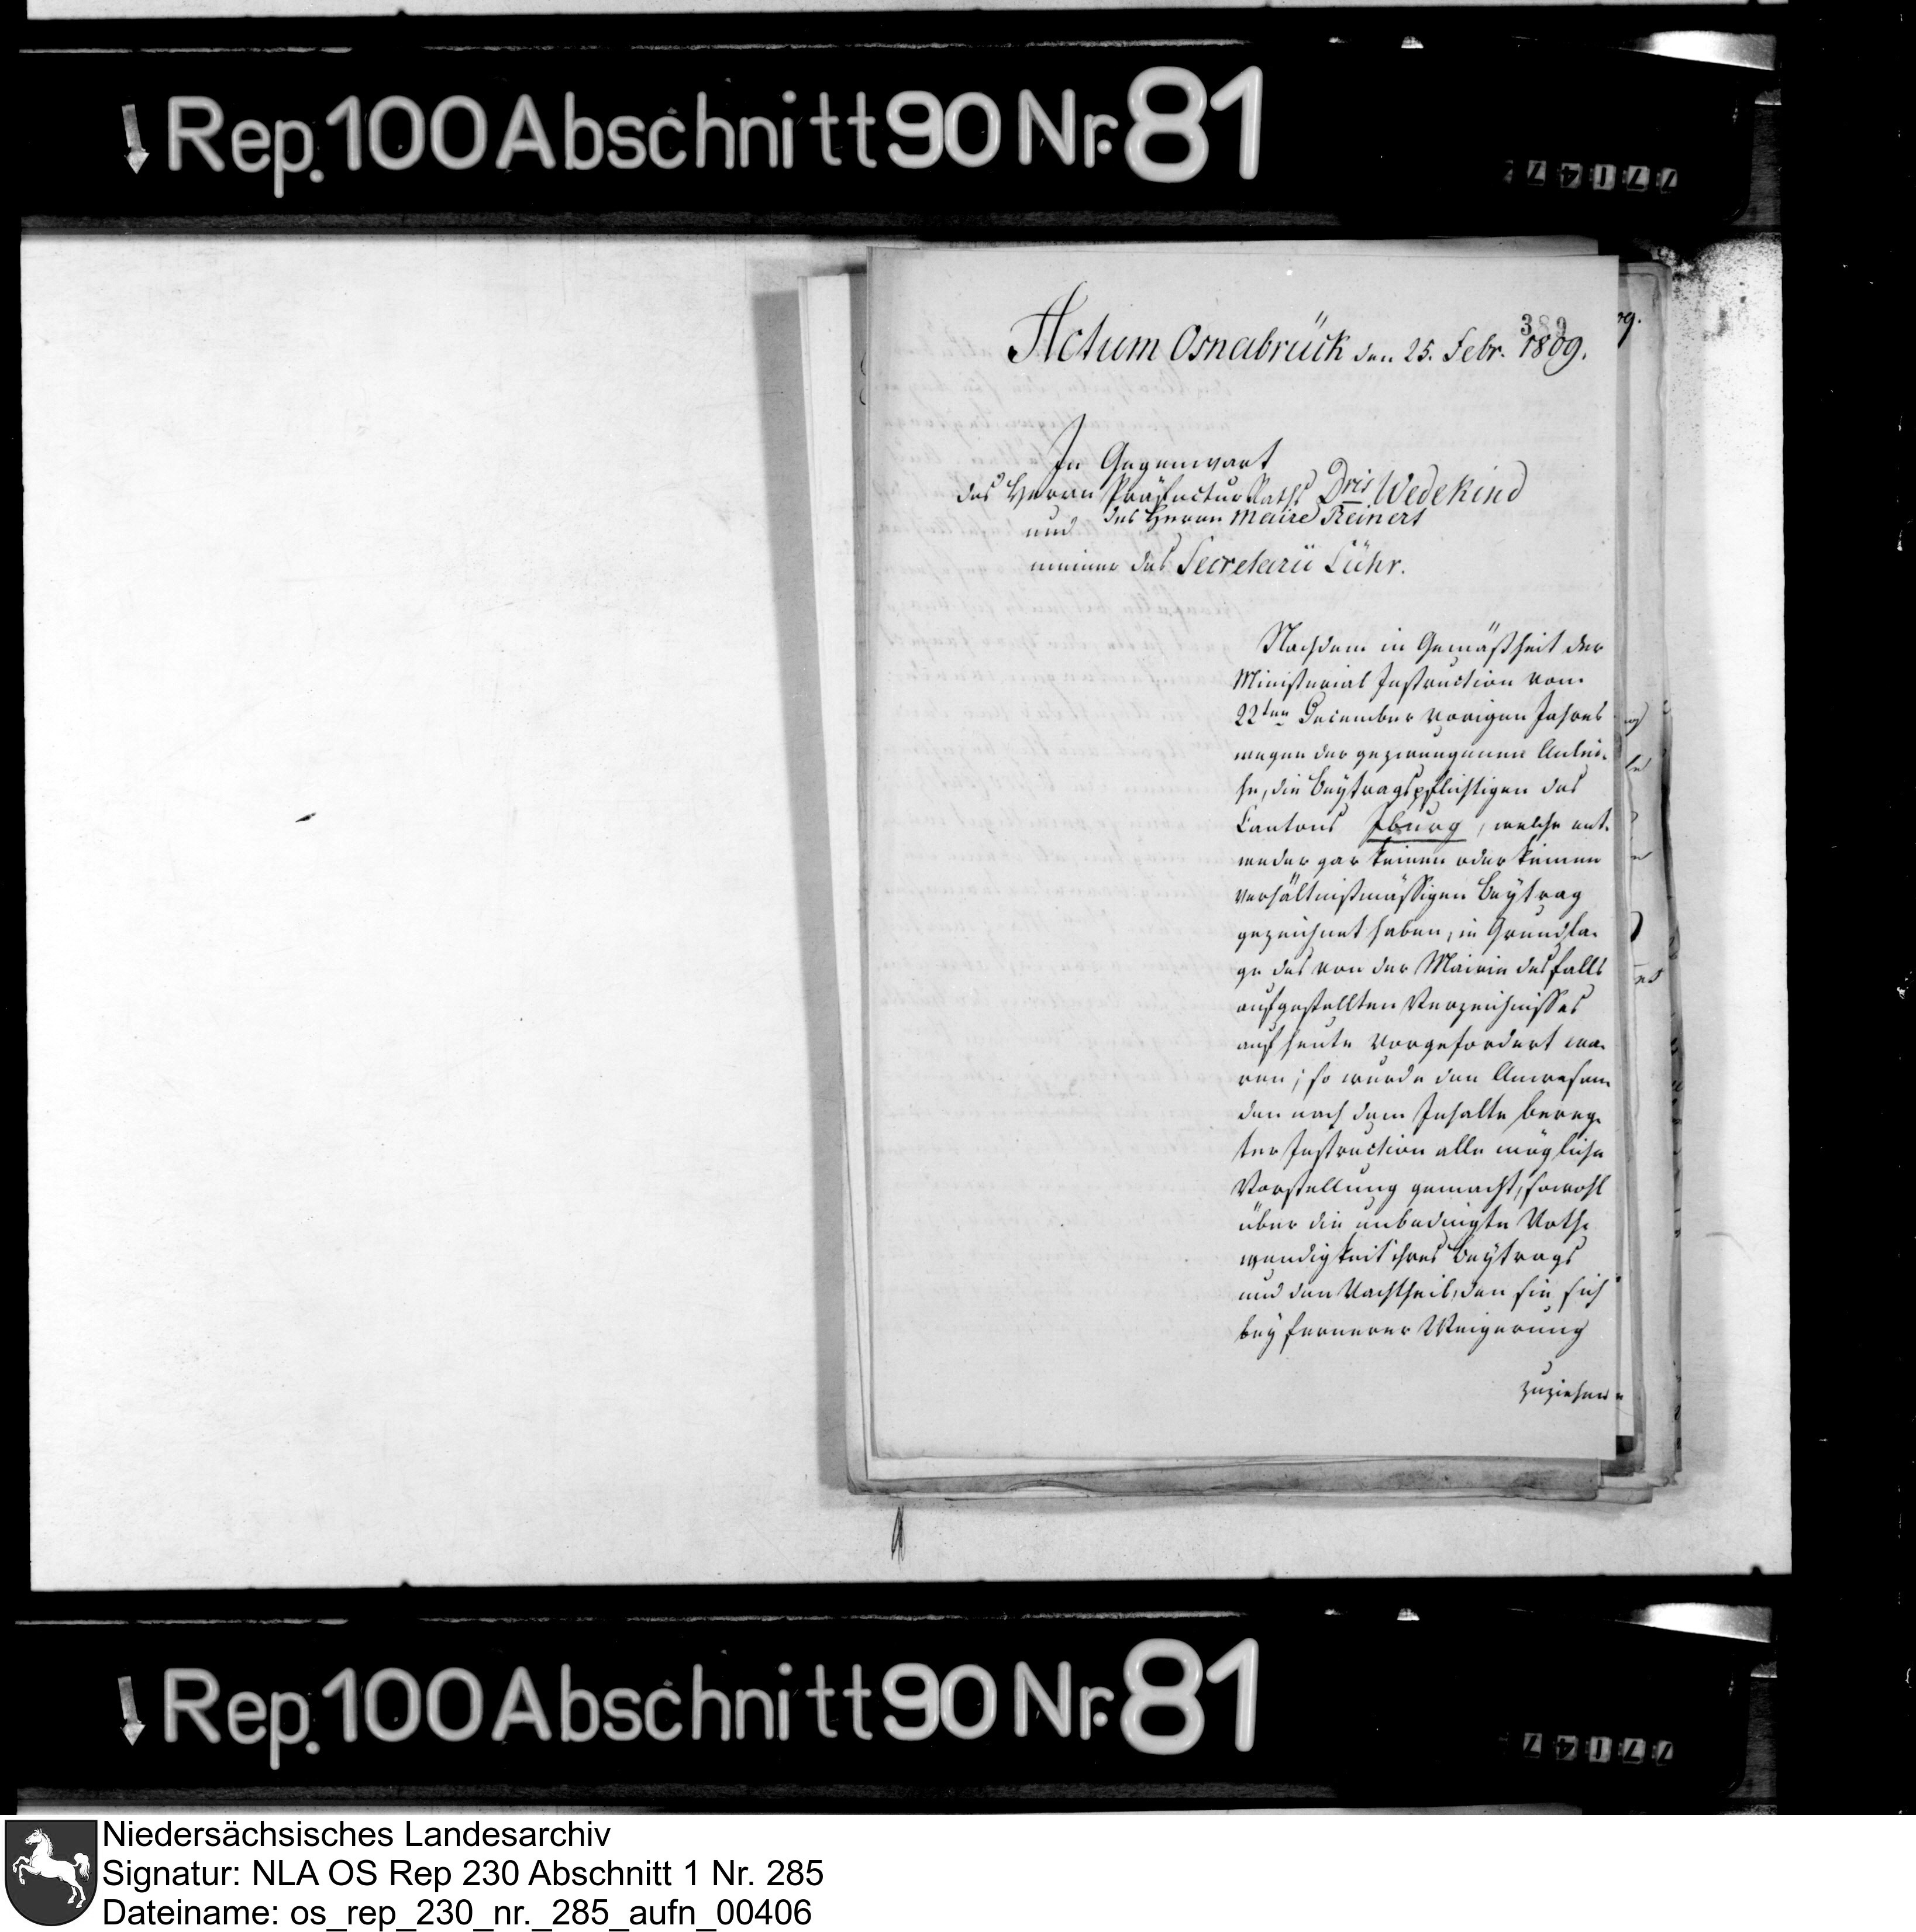 Rep. 100 Abschnitt 90 Nr. 81
389
Actum Osnabrück den 25. Febr. 1809.
In Gegenwart
des Herrn PräfecturRaths Dris Wedekind
des Herrn Maire Reinert
und
meiner des Secretarii Lühr.
Nachdem in Gemäßheit der
Ministerial Instruction vom
22ten December vorigen Jahres
wegen der gezwungenen Anlei-
he, die Beytragspflichtigen des
Cantons Iburg, welche ent-
weder gar keinen oder keinen
verhältnißmässigen Beytrag
gezeichnet haben, in Grundla-
ge des von der Mairie desfalls
aufgestellten Verzeichnisses
auf heute vorgefordert wa-
ren; so wurde den Anwesen-
den nach dem Inhalte bereg-
ter Instruction alle mögliche
Vorstellung gemacht, sowohl
über die unbedingte Noth-
wendigkeit ihres Beytrags
und den Nachtheil, den sie sich
bey fernerer Weigerung
zuziehen
Rep. 100 Abschnitt 90 Nr. 81
Niedersächsisches Landesarchiv
Signatur: NLA OS Rep 230 Abschnitt 1 Nr. 285
Dateiname: os_rep_230_nr._285_aufn_00406